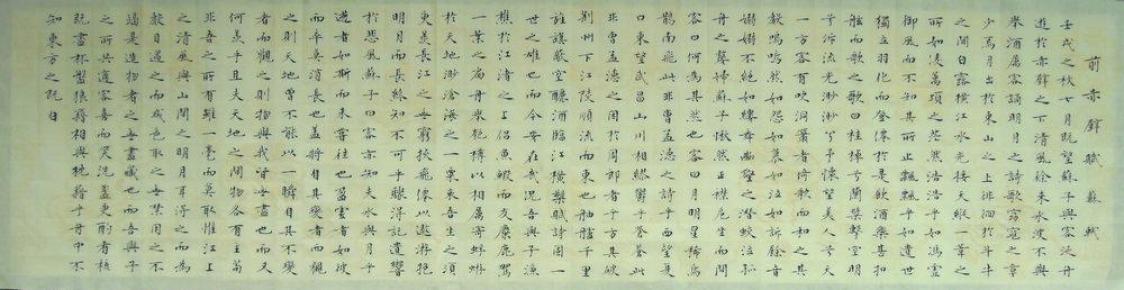 前赤壁賦 蘇軾
壬戌之秋七月既望蘇子與客泛舟
遊於赤壁之下清風徐來水波不興
舉酒屬客誦明月之詩歌窈窕之章
少焉月出於東山之上徘徊於斗牛
之間白露橫江水光接天縱一葦之
所如凌萬頃之茫然浩浩乎如馮虛
御風而不知其所止飄飄乎如遺世
獨立羽化而登僊於是飲酒樂甚扣
舷而歌之歌曰桂棹兮蘭槳擊空明
兮泝流光渺渺兮予懷望美人兮天
一方客有吹洞簫者倚歌而和之其
聲嗚嗚然如怨如慕如泣如訴餘音
嫋嫋不絕如縷舞幽壑之潛蛟泣孤
舟之嫠婦蘇子愀然正襟危坐而問
客曰何為其然也客曰月明星稀烏
鵲南飛此非曹孟德之詩乎西望夏
口東望武昌山川相繆鬱乎蒼蒼此
非曹孟德之困於周郎者乎方其破
荊州下江陵順流而東也舳艫千里
旌旗蔽空釃酒臨江橫槊賦詩固一
世之雄也而今安在哉況吾與子漁
樵於江渚之上侶魚蝦而友麋鹿駕
一葉之扁舟舉匏樽以相屬寄蜉蝣
於天地渺滄海之一粟哀吾生之須
臾羨長江之無窮挾飛僊以遨遊抱
明月而長終知不可乎驟得託遺響
於悲風蘇子曰客亦知夫水與月乎
逝者如斯而未嘗往也盈虛者如彼
而卒莫消長也蓋將自其變者而觀
之則天地曾不能以一瞬自其不變
者而觀之則物與我皆無盡也而又
何羨乎且夫天地之間物各有主苟
非吾之所有雖一毫而莫取惟江上
之清風與山間之明月耳得之而為
聲目遇之而成色取之無禁用之不
竭是造物者之無盡藏也而吾與子
之所共適客喜而笑洗盞更酌肴核
既盡杯盤狼藉相與枕藉乎舟中不
知東方之既白